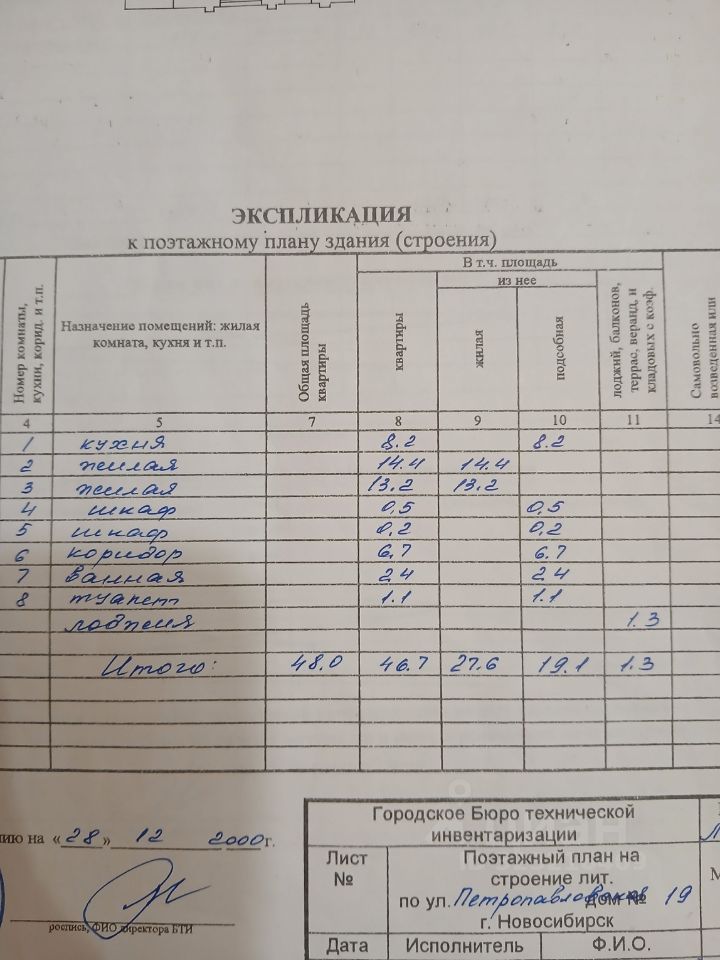 ЭКСПЛИКАЦИЯ
к поэтажному плану здания (строения)
Номер комнаты, кухни, корид. и т.п.
Назначение помещений: жилая комната, кухня и т.п.
Общая площадь квартиры
В т.ч. площадь
квартиры
из нее
жилая
подсобная
лоджий, балконов, террас, веранд, и кладовых с коэф.
Самовольно возведенная или
4 5 7 8 9 10 11 14
1 кухня 8.2 8.2
2 жилая 14.4 14.4
3 жилая 13.2 13.2
4 шкаф 0,5 0,5
5 шкаф 0,2 0,2
6 коридор 6,7 6.7
7 ванная 2 4 2 4
8 туалет 1.1 1.1
лоджия 1.3
Итого: 48.0 46.7 27.6 19.1 1.3
нию на «28» 12 2000г.
роспись, ФИО директора БТИ
Городское Бюро технической
инвентаризации
Лист
№
Поэтажный план на
строение лит.
по ул. Петропавловская дом № 19
г. Новосибирск
Дата Исполнитель Ф.И.О.